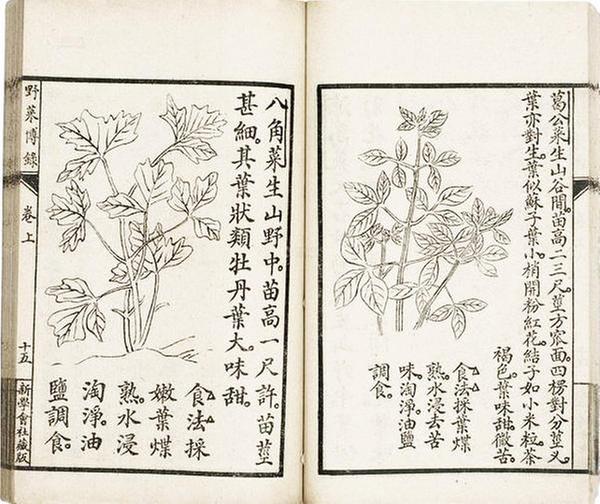 葛公菜生山谷間。苗高二三尺。莖方窊面。四楞對分莖叉。
葉亦對生。葉似蘇子葉小。梢開粉紅花。結子如小米粒。茶
褐色。葉味甜。微苦。
食法採葉煠
熟水浸去苦
味淘淨。油鹽
調食。
八角菜生山野中。苗高一尺許。苗莖
甚細。其葉狀類牡丹葉大。味甜。
食法採
嫩葉煠
熟水浸
淘淨。油
鹽調食。
野菜博錄
卷上
十五
新學會社藏版